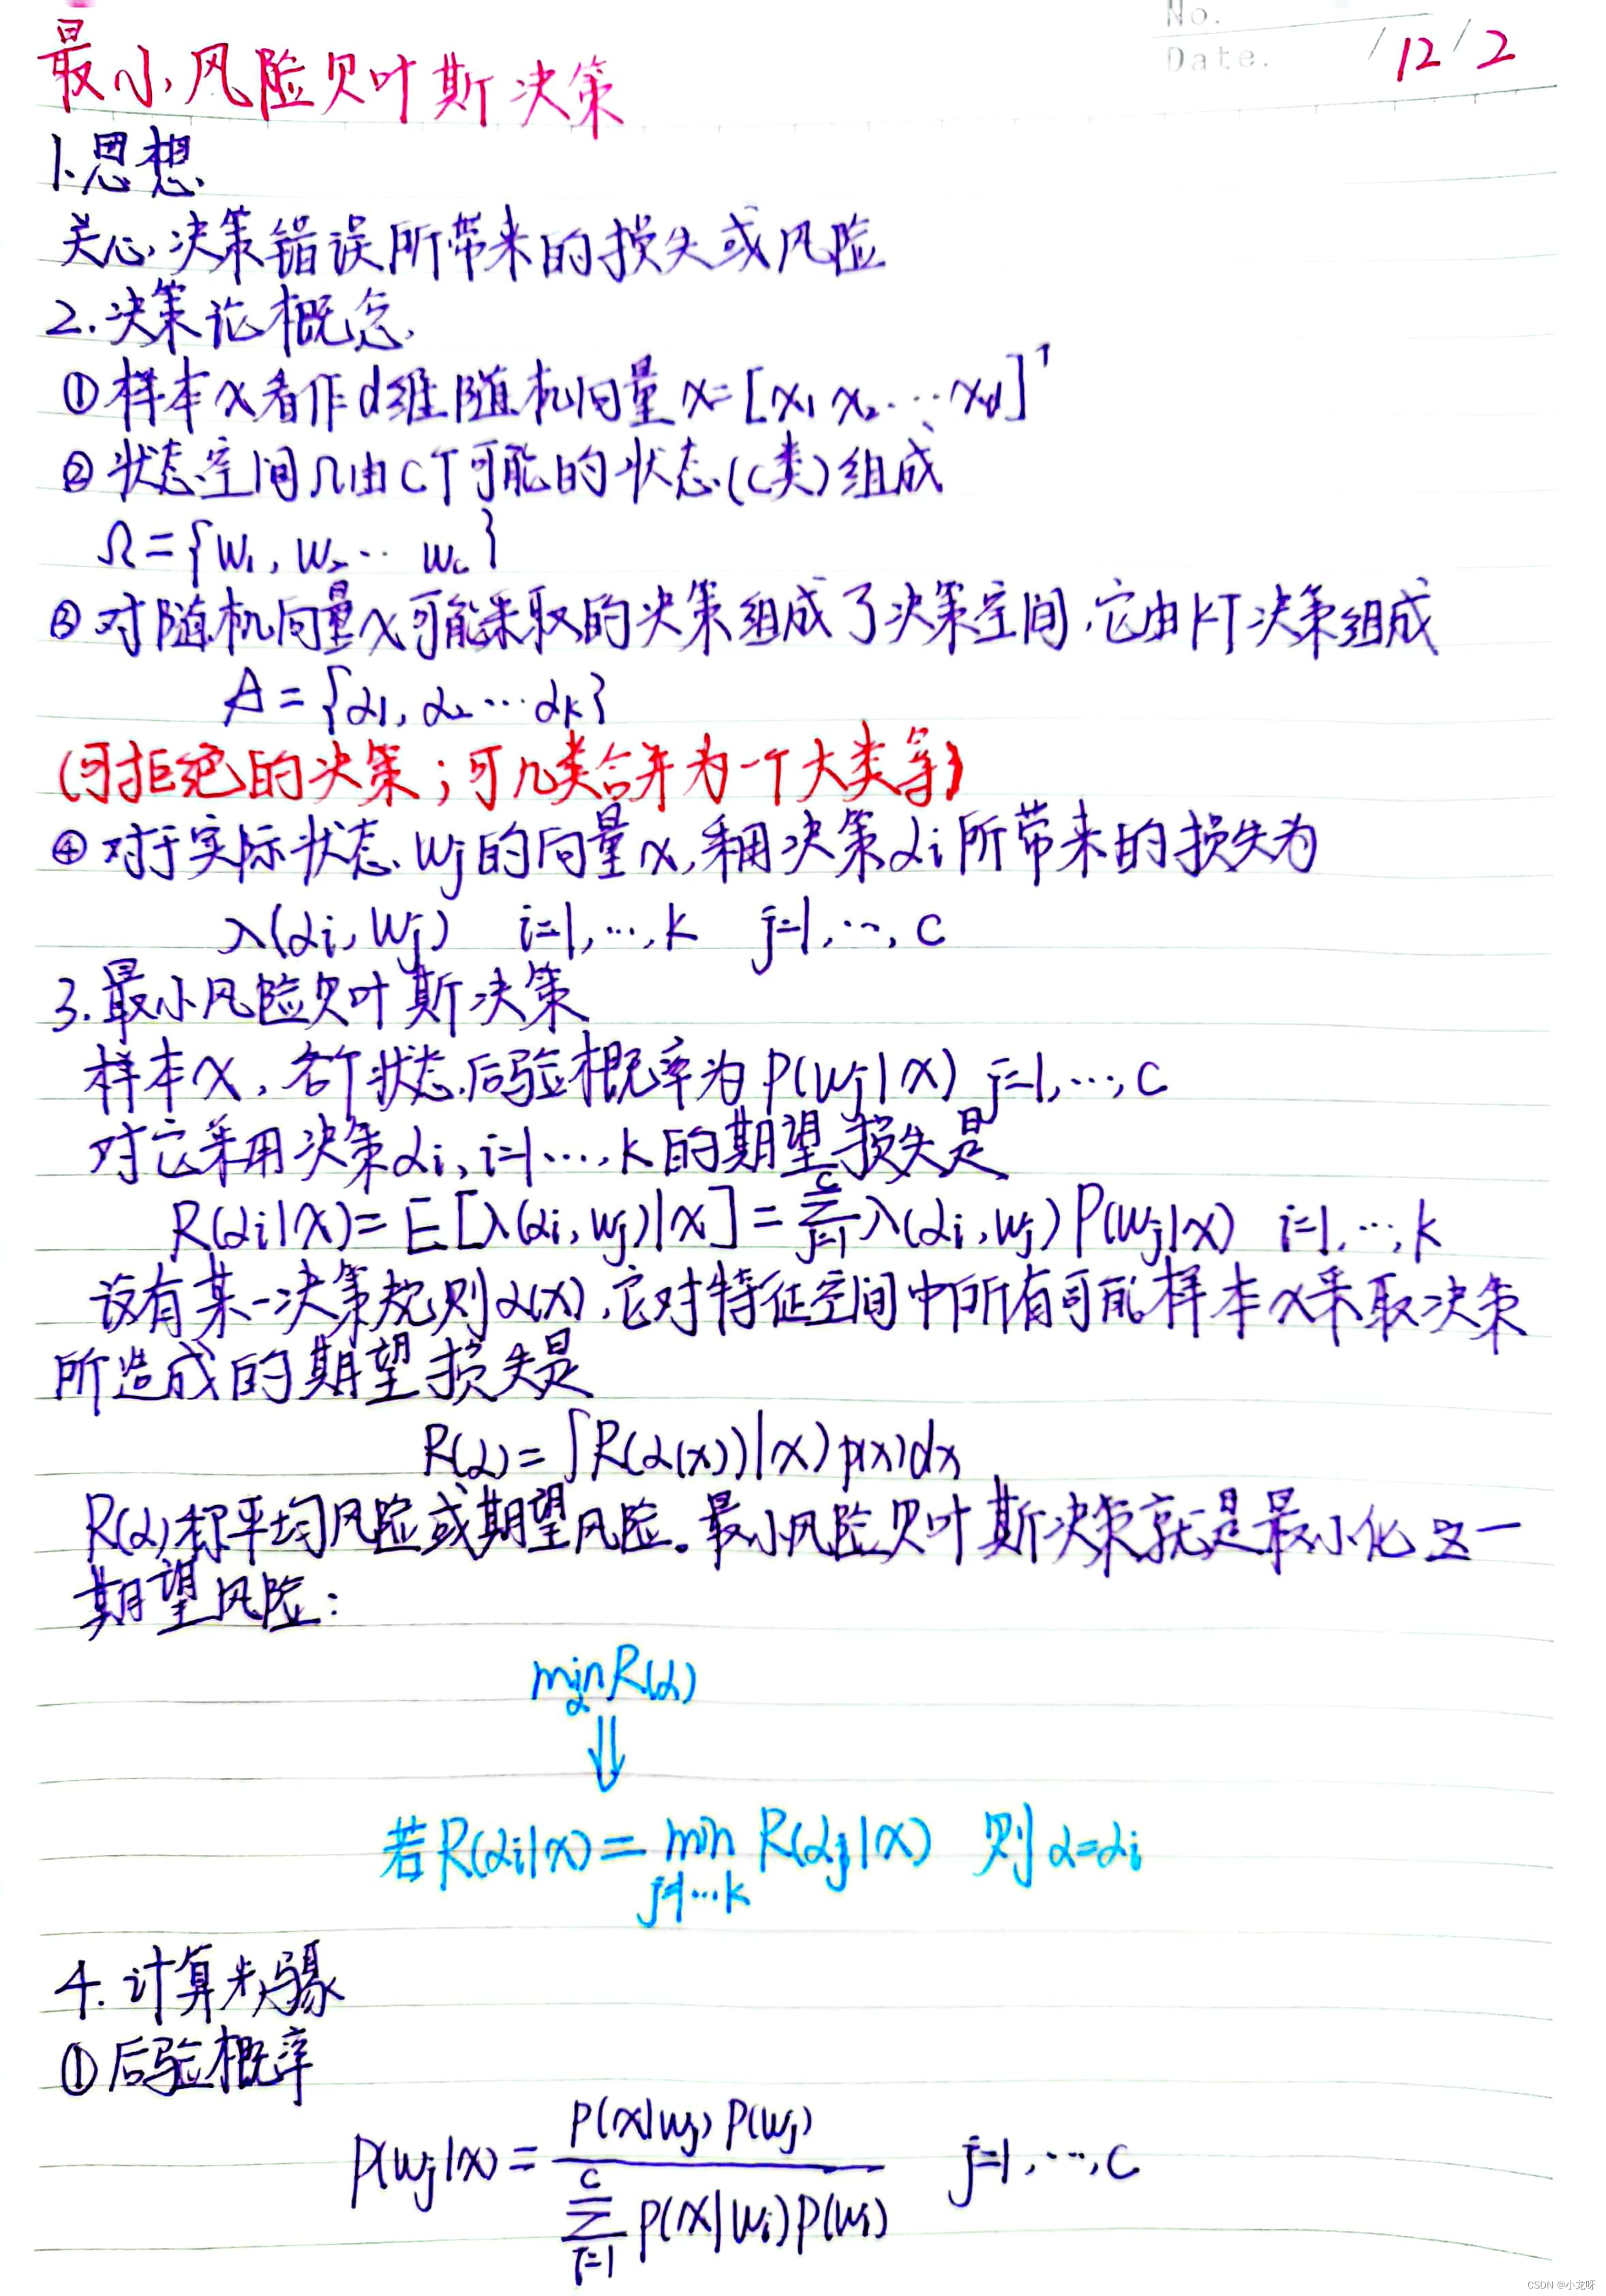 No.
Date. / 12 / 2
最小风险贝叶斯决策
1.思想
关心决策错误所带来的损失或风险
2.决策论概念
①样本x看作d维随机向量x=[x₁ x₂ … x_d]ᵀ
②状态空间Ω由c个可能的状态(c类)组成
Ω={w₁, w₂ … w_c}
③对随机向量x可能采取的决策组成了决策空间,它由k个决策组成
A={α₁, α₂ … α_k}
(可拒绝的决策;可几类合并为一个大类等)
④对于实际状态wj的向量x,采用决策αi所带来的损失为
λ(αi, wj) i=1, …, k j=1, …, c
3.最小风险贝叶斯决策
样本x, 各个状态后验概率为P(wj|x) j=1, …, c
对它采用决策αi, i=1…, k的期望损失是
R(αi|x)=E[λ(αi, wj)|x]=∑_{j=1}^{c} λ(αi, wj)P(wj|x) i=1, …, k
设有某一决策规则α(x),它对特征空间中所有可能样本x采取决策
所造成的期望损失是
R(α)=∫R(α(x))|x)p(x)dx
R(α)称平均风险或期望风险。最小风险贝叶斯决策就是最小化这一
期望风险:
min_α R(α)
⇓
若R(αi|x)=min_{j=1…k} R(αj|x) 则α=αi
4.计算步骤
①后验概率
P(wj|x)=\frac{P(x|wj)P(wj)}{∑_{i=1}^{c} P(x|wi)P(wi)} j=1, …, c
CSDN @小龙呀